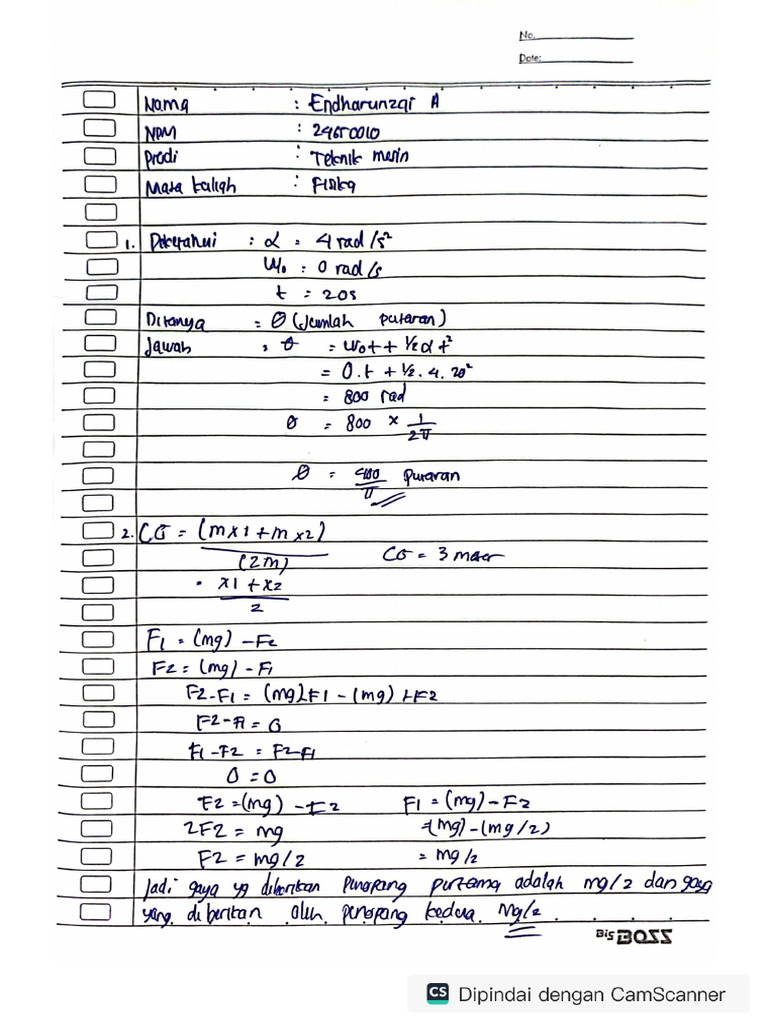 No.
Date:
Nama : Endharunzqi A
NPM : 24650010
Prodi : Teknik mesin
Mata kuliah : Fisika
1. Diketahui : α = 4 rad/s²
W₀ : 0 rad/s
t = 20s
Ditanya = θ (Jumlah putaran)
Jawab : θ = W₀t + ½αt²
= 0.t + ½.4.20²
= 800 rad
θ = 800 × 1/2π
θ = 400/π putaran
2. CG = (mx1 + mx2)
(2m) CG = 3 meter
• x1 + x2
2
F1 = (mg) - F2
F2 = (mg) - F1
F2-F1 = (mg)-F1 - (mg) + F2
F2-F1 = 0
F1-F2 = F2-F1
0 = 0
F2 = (mg) - F2 F1 = (mg) - F2
2F2 = mg =(mg) - (mg/2)
F2 = mg/2 = mg/2
Jadi gaya yg diberikan penopang pertama adalah mg/2 dan gaya
yang diberikan oleh penopang kedua Mg/2
Bis BOSS
CS Dipindai dengan CamScanner